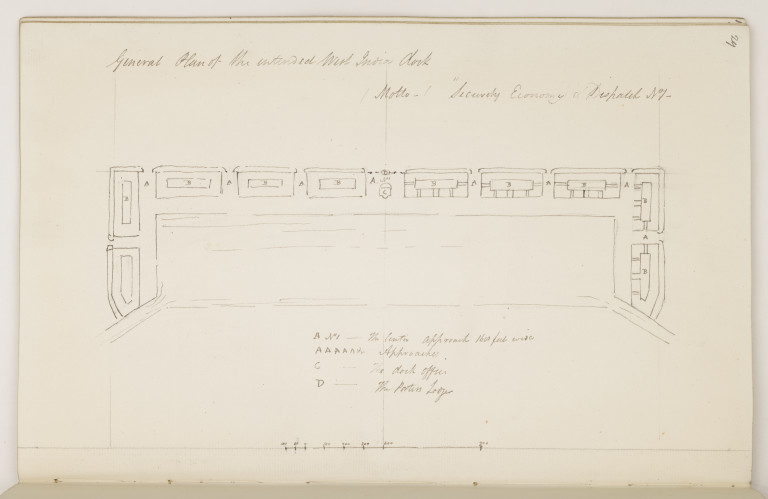 29
General Plan of the intended West India Dock
(Motto - ) "Security Economy & Dispatch No 1 -
A B A B A B A D C B A B A B A B
B
A
B B
A No 1 — The Center approach
A A A A A A Approaches
C — The dock office
D — The Porters Lodge